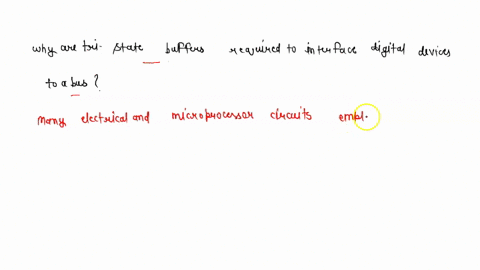 why are tri- state buffers required to interface digital devices
to a bus?
many electrical and microprocessor circuits empl